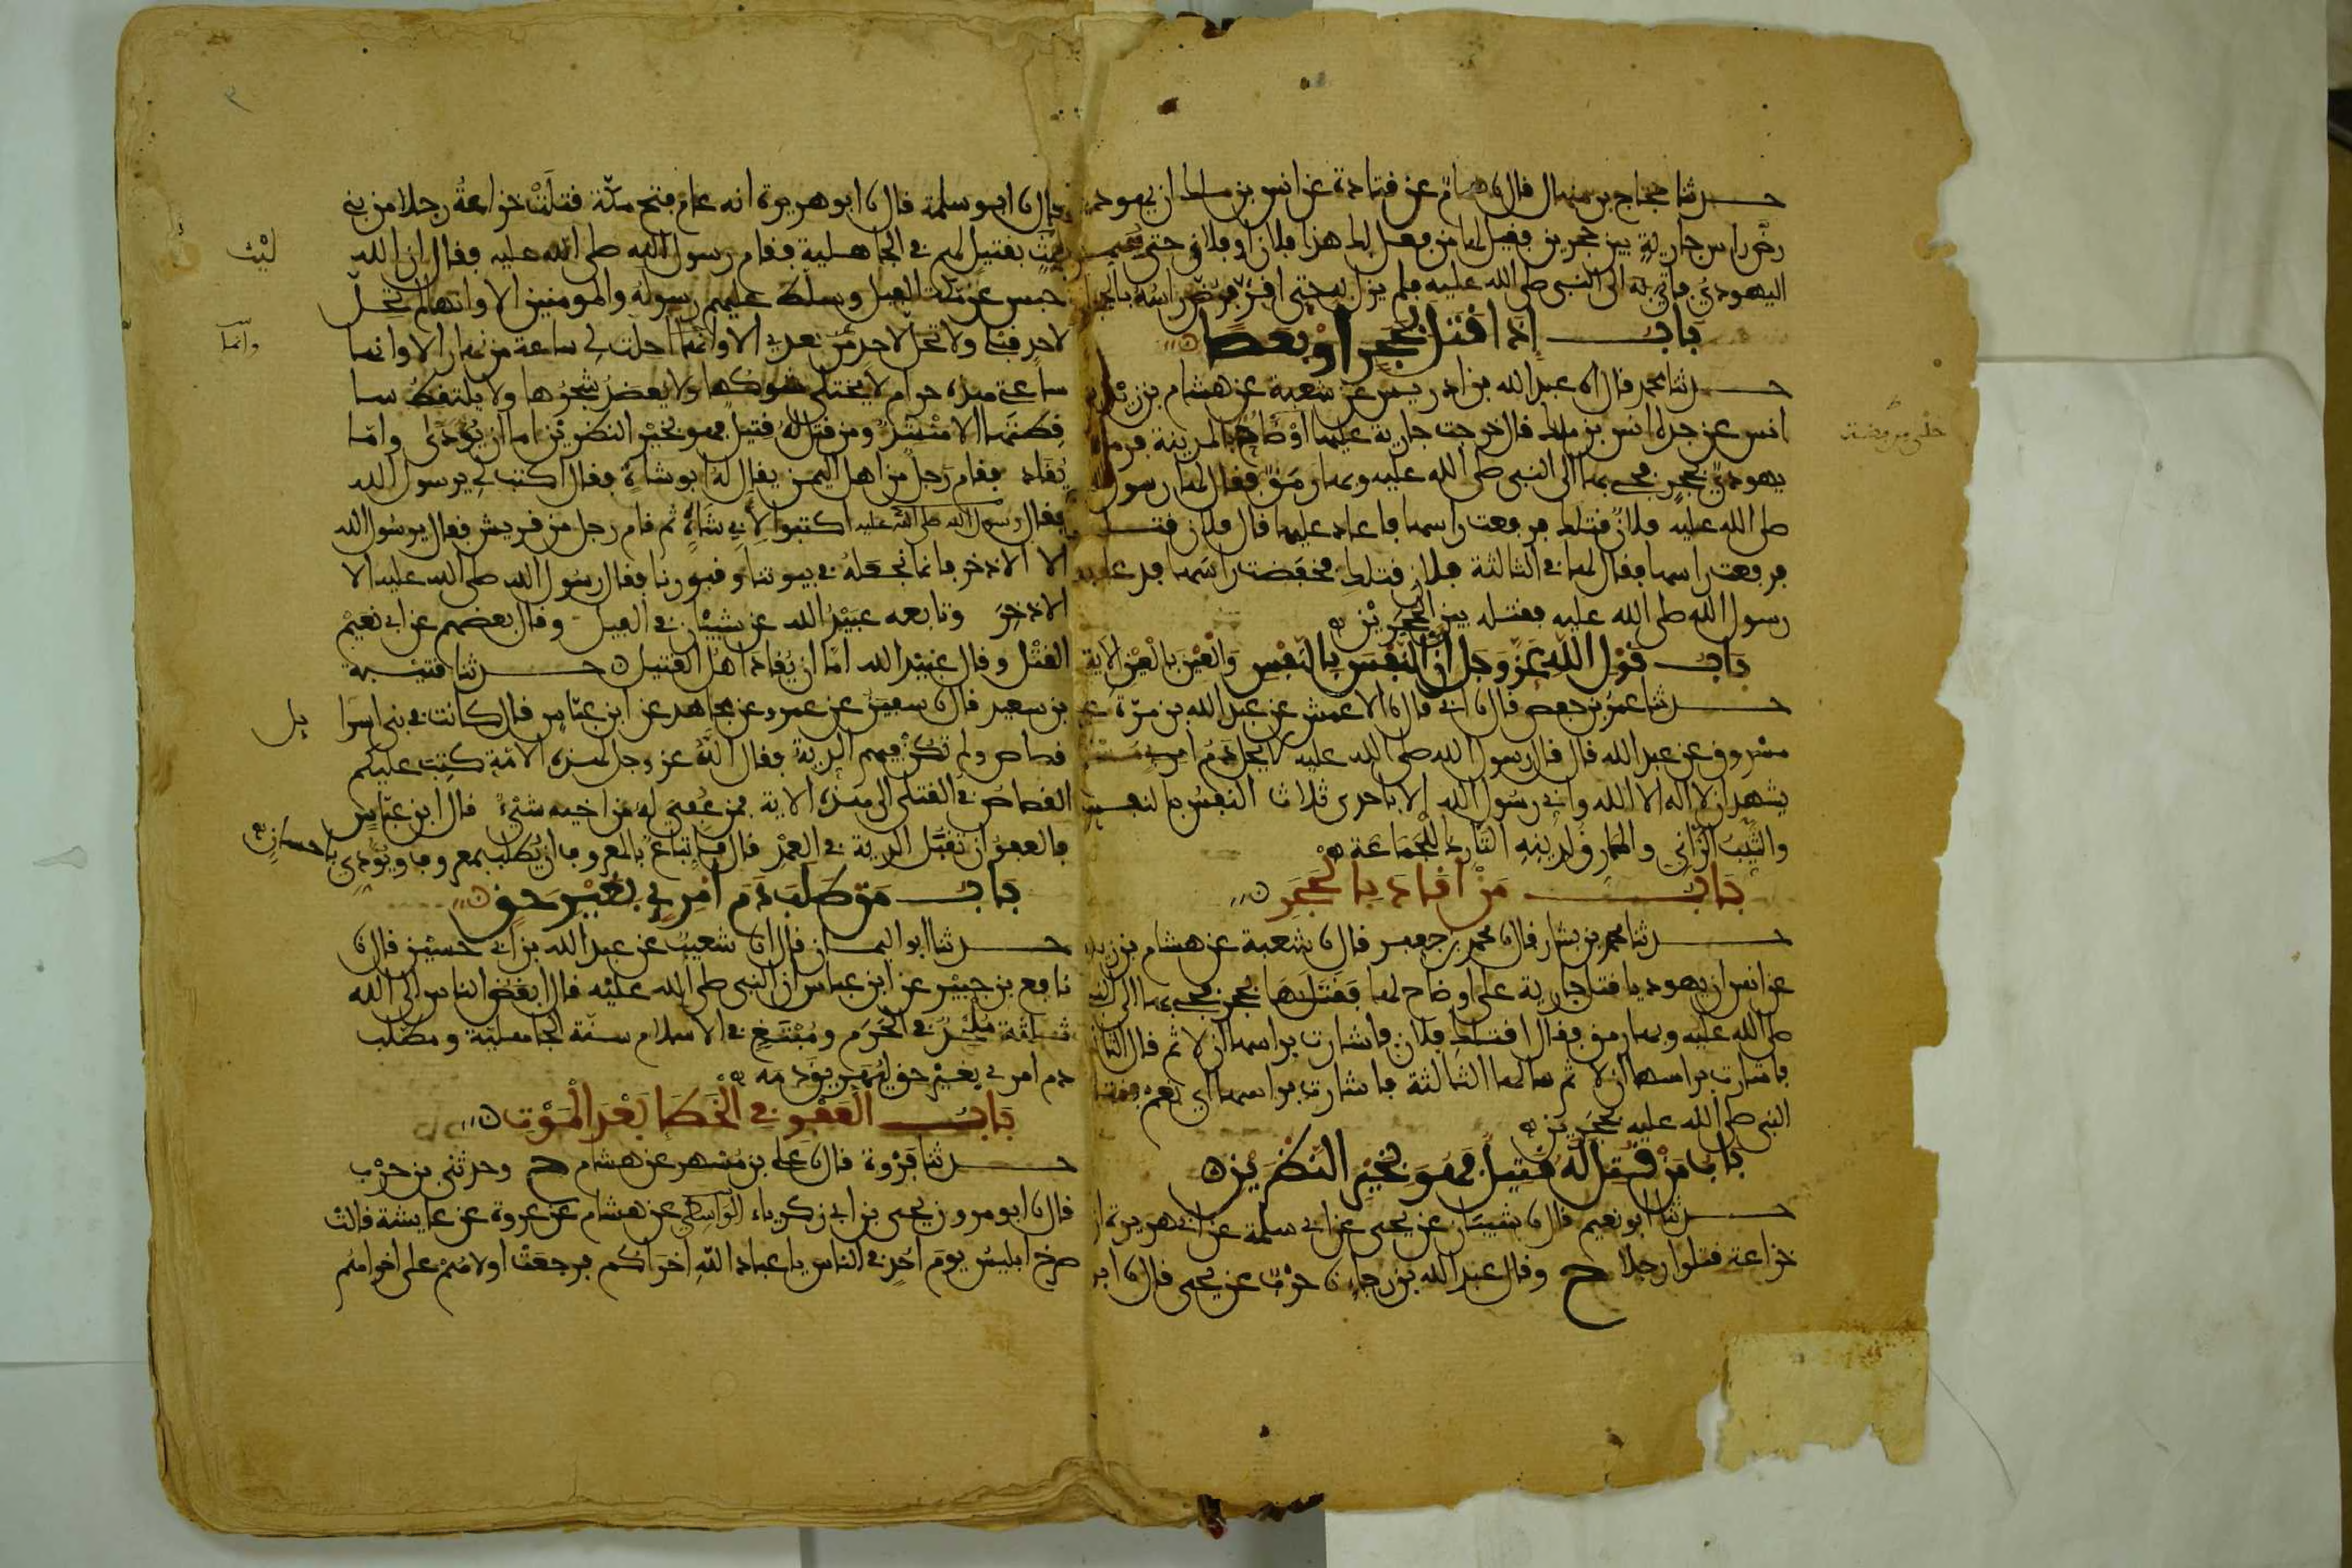 حدثنا حجاج بن منهال قال نا همام عن قتادة عن انس بن ملك ان يهوديا
رض راس جارية بين حجرين فقيل لها من فعل بك هذا فلان او فلان حتى سمي
اليهودي فاتي به الى النبي صلى الله عليه فلم يزل به حتى اقر فرض راسه بالحجارة
باب إذا قتل بحجر أو بعصا
حدثنا محمد قال انا عبد الله بن ادريس عن شعبة عن هشام بن زيد بن
انس عن جده انس بن ملك قال خرجت جارية عليها اوضاح بالمدينة فرماها
حلي من فضة
يهودي بحجر فجيء بها الى النبي صلى الله عليه وبها رمق فقال لها رسول الله
صلى الله عليه فلان قتلك فرفعت راسها فاعاد عليها قال فلان قتلك
فرفعت راسها فقال لها في الثالثة فلان قتلك فخفضت راسها فدعا به
رسول الله صلى الله عليه فقتله بين الحجرين
باب قول الله عز وجل أن النفس بالنفس والعين بالعين الاية
حدثنا عمر بن حفص قال نا ابي قال نا الاعمش عن عبد الله بن مرة عن
مسروق عن عبد الله قال قال رسول الله صلى الله عليه لا يحل دم امرئ مسلم
يشهد ان لا اله الا الله واني رسول الله الا باحدى ثلاث النفس بالنفس
والثيب الزاني والمارق لدينه التارك للجماعة
باب من أقاد بالحجر
حدثنا محمد بن بشار قال نا محمد بن جعفر قال نا شعبة عن هشام بن زيد
عن انس ان يهوديا قتل جارية على اوضاح لها فقتلها بحجر فجيء بها الى النبي
صلى الله عليه وبها رمق فقال اقتلك فلان فاشارت براسها ان لا ثم قال الثانية
فاشارت براسها ان لا ثم سالها الثالثة فاشارت براسها اي نعم فقتله
النبي صلى الله عليه بحجرين
باب من قتل له قتيل فهو بخير النظرين
حدثنا ابو نعيم قال نا شيبان عن يحيى عن ابي سلمة عن ابي هريرة ان
خزاعة قتلوا رجلا ح وقال عبد الله بن رجاء نا حرب عن يحيى قال نا ابو
قال نا ابو سلمة قال نا ابو هريرة انه عام فتح مكة قتلت خزاعة رجلا من بني
ليث بقتيل لهم في الجاهلية فقام رسول الله صلى الله عليه فقال ان الله
ليث
حبس عن مكة الفيل وسلط عليهم رسوله والمومنين الا وانها لم تحل
لاحد قبلي ولا تحل لاحد من بعدي الا وانما احلت لي ساعة من نهار الا وانها
وانما
ساعتي هذه حرام لا يختلى شوكها ولا يعضد شجرها ولا يلتقط سا
قطتها الا منشد ومن قتل له قتيل فهو بخير النظرين اما ان يودى واما
يقاد فقام رجل من اهل اليمن يقال له ابو شاة فقال اكتب لي يرسول الله
فقال رسول الله صلى الله عليه اكتبوا لابي شاة ثم قام رجل من قريش فقال يرسول الله
الا الاذخر فانما نجعله في بيوتنا وقبورنا فقال رسول الله صلى الله عليه الا
الاذخر وتابعه عبيد الله عن شيبان في الفيل وقال بعضهم عن ابي نعيم
القتل وقال عبيد الله اما ان يقاد اهل القتيل حدثنا قتيبة
بن سعيد قال نا سفين عن عمرو عن مجاهد عن ابن عباس قال كانت في بني اسرا
يل
قصاص ولم تكن فيهم الدية فقال الله عز وجل لهذه الامة كتب عليكم
القصاص في القتلى الى هذه الاية فمن عفي له من اخيه شيء قال ابن عباس
فالعفو ان تقبل الدية في العمد قال فاتباع بالمعروف ان يطلب بمعروف ويودي باحسان
باب من طلب دم امرئ بغير حق
حدثنا ابو اليمان قال انا شعيب عن عبد الله بن ابي حسين قال نا
نافع بن جبير عن ابن عباس ان النبي صلى الله عليه قال ابغض الناس الى الله
ثلثة ملحد في الحرم ومبتغ في الاسلام سنة الجاهلية ومطلب
دم امرئ بغير حق ليهريق دمه
باب العفو في الخطا بعد الموت
حدثنا فروة قال نا علي بن مسهر عن هشام ح وحدثني بن حرب
قال نا ابو مرون يحيى بن ابي زكرياء الواسطي عن هشام عن عروة عن عايشة قالت
صرخ ابليس يوم احد في الناس يا عباد الله اخراكم فرجعت اولاهم على اخراهم